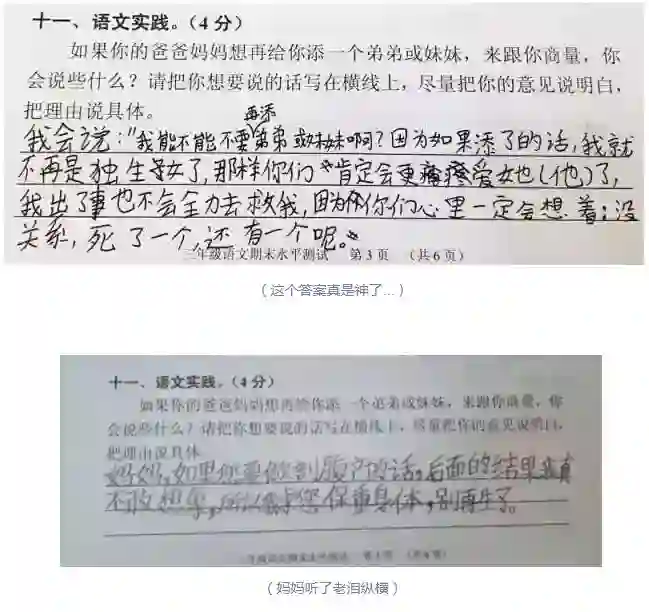 十一、语文实践。(4分)
如果你的爸爸妈妈想再给你添一个弟弟或妹妹，来跟你商量，你
会说些什么？请把你想要说的话写在横线上，尽量把你的意见说明白，
把理由说具体。
再添
我会说："我能不能不要弟弟或妹妹啊？因为如果添了的话，我就
不再是独生子女了，那样你们肯定会更疼爱她（他）了，
我出了事也不会全力去救我，因为你们心里一定会想着：没
关系，死了一个，还有一个呢。"
三年级语文期末水平测试 第3页 （共6页）
（这个答案真是神了...）
十一、语文实践。（4分）
如果你的爸爸妈妈想再给你添一个弟弟或妹妹，来跟你商量，你
会说些什么？请把你想要说的话写在横线上，尽量把你的意见说明白，
把理由说具体。
妈妈，如果您要做剖腹产的话，后面的结果我真
不敢想象，所以我请您保重身体，别再生了。
三年级语文期末水平测试 第3页 （共6页）
（妈妈听了老泪纵横）